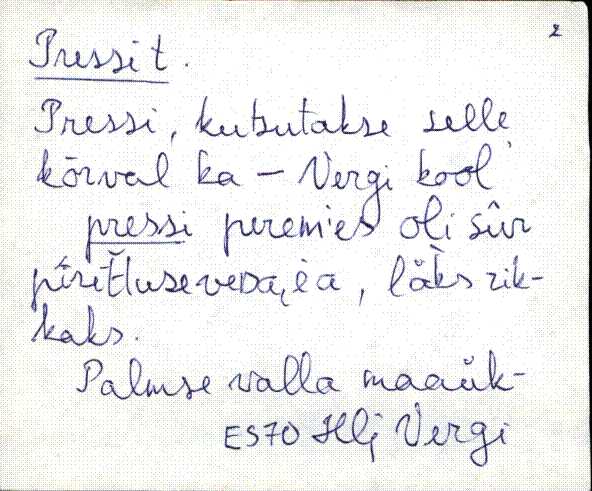 2
Pressi t.
Pressi, kutsutakse selle
kõrval ka – Vergi kool
pressi peremies oli sûr
pîrit̆lusevedaja, läks rik-
kaks.
Palmse valla maaük-
ES70 Hlj Vergi